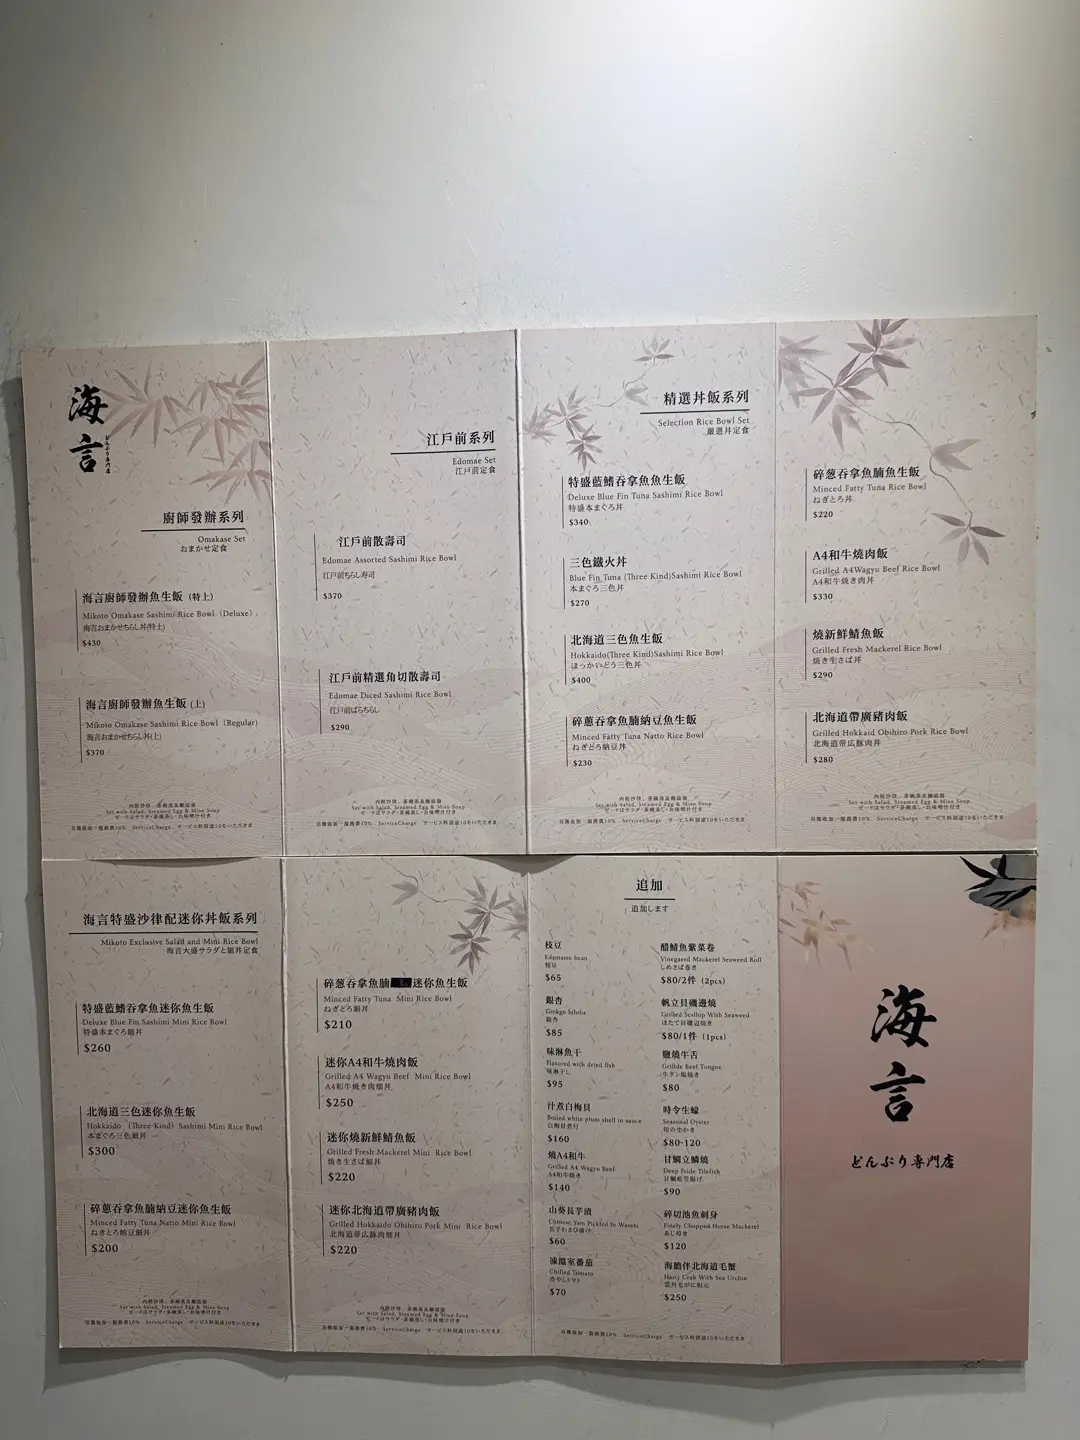 海言
どんぶり專門店
廚師發辦系列
Omakase Set
おまかせ定食
海言廚師發辦魚生飯 (特上)
Mikoto Omakase Sashimi Rice Bowl (Deluxe)
海言おまかせちらし丼(特上)
$430
海言廚師發辦魚生飯 (上)
Mikoto Omakase Sashimi Rice Bowl (Regular)
海言おまかせちらし丼(上)
$370
內附沙律、茶碗蒸及麵豉湯
Set with Salad, Steamed Egg & Miso Soup
セードはサラダ・茶碗蒸し・お味噌汁付き
另徵收加一服務費10% ServiceCharge サービス料別途10をいただきま
江戶前系列
Edomae Set
江戸前定食
江戶前散壽司
Edomae Assorted Sashimi Rice Bowl
江戸前ちらし寿司
$370
江戶前精選角切散壽司
Edomae Diced Sashimi Rice Bowl
江戸前ばらちらし
$290
內附沙律、茶碗蒸及麵豉湯
Set with Salad, Steamed Egg & Miso Soup
セードはサラダ・茶碗蒸し・お味噌汁付き
另徵收加一服務費10% ServiceCharge サービス料別途10をいただきま
精選丼飯系列
Selection Rice Bowl Set
厳選丼定食
特盛藍鰭吞拿魚魚生飯
Deluxe Blue Fin Tuna Sashimi Rice Bowl
特盛本まぐろ丼
$340
三色鐵火丼
Blue Fin Tuna (Three Kind)Sashimi Rice Bowl
本まぐろ三色丼
$270
北海道三色魚生飯
Hokkaido(Three Kind)Sashimi Rice Bowl
ほっかいどう三色丼
$400
碎蔥吞拿魚腩納豆魚生飯
Minced Fatty Tuna Natto Rice Bowl
ねぎとろ納豆丼
$230
內附沙律、茶碗蒸及麵豉湯
Set with Salad, Steamed Egg & Miso Soup
セードはサラダ・茶碗蒸し・お味噌汁付き
另徵收加一服務費10% ServiceCharge サービス料別途10をいただきま
碎葱吞拿魚腩魚生飯
Minced Fatty Tuna Rice Bowl
ねぎとろ丼
$220
A4和牛燒肉飯
Grilled A4Wagyu Beef Rice Bowl
A4和牛焼き肉丼
$330
燒新鮮鯖魚飯
Grilled Fresh Mackerel Rice Bowl
焼き生さば丼
$290
北海道帶廣豬肉飯
Grilled Hokkaid Obihiro Pork Rice Bowl
北海道帯広豚肉丼
$280
內附沙律、茶碗蒸及麵豉湯
Set with Salad, Steamed Egg & Miso Soup
セードはサラダ・茶碗蒸し・お味噌汁付き
另徵收加一服務費10% ServiceCharge サービス料別途10をいただきま
海言特盛沙律配迷你丼飯系列
Mikoto Exclusive Salad and Mini Rice Bowl
海言大盛サラダと細丼定食
特盛藍鰭吞拿魚迷你魚生飯
Deluxe Blue Fin Sashimi Mini Rice Bowl
特盛本まぐろ細丼
$260
北海道三色迷你魚生飯
Hokkaido (Three-Kind) Sashimi Mini Rice Bowl
本まぐろ三色細丼
$300
碎蔥吞拿魚腩納豆迷你魚生飯
Minced Fatty Tuna Natto Mini Rice Bowl
ねぎとろ納豆細丼
$200
內附沙律、茶碗蒸及麵豉湯
Set with Salad, Steamed Egg & Miso Soup
セードはサラダ・茶碗蒸し・お味噌汁付き
另徵收加一服務費10% ServiceCharge サービス料別途10をいただきま
碎葱吞拿魚腩 迷你魚生飯
Minced Fatty Tuna Mini Rice Bowl
ねぎとろ細丼
$210
迷你A4和牛燒肉飯
Grilled A4 Wagyu Beef Mini Rice Bowl
A4和牛焼き肉細丼
$250
迷你燒新鮮鯖魚飯
Grilled Fresh Mackerel Mini Rice Bowl
焼き生さば細丼
$220
迷你北海道帶廣豬肉飯
Grilled Hokkaido Obihiro Pork Mini Rice Bowl
北海道帯広豚肉細丼
$220
內附沙律、茶碗蒸及麵豉湯
Set with Salad, Steamed Egg & Miso Soup
セードはサラダ・茶碗蒸し・お味噌汁付き
另徵收加一服務費10% ServiceCharge サービス料別途10をいただきま
追加
追加します
枝豆
Edamame bean
枝豆
$65
銀杏
Ginkgo biloba
銀杏
$85
味淋魚干
Flavored with dried fish
味淋干し
$95
汁煮白梅貝
Boiled white plum shell in sauce
白梅貝煮付
$160
燒A4和牛
Grilled A4 Wagyu Beef
A4和牛焼き
$140
山葵長芋漬
Chinese Yam Pickled In Wasabi
長芋わさび漬け
$60
凍溫室番茄
Chilled Tomato
冷やしトマト
$70
醋鯖魚紫菜卷
Vinegared Mackerel Seaweed Roll
しめさば巻き
$80/2件 (2pcs)
帆立貝磯邊燒
Grilled Scsllop With Seaweed
ほたて貝磯辺焼き
$80/1件 (1pcs)
鹽燒牛舌
Grillde Beef Tongue
牛タン塩焼き
$80
時令生蠔
Seasonal Oyster
旬の生かき
$80-120
甘鯛立鱗燒
Deep Fride Tilefish
甘鯛松笠揚げ
$90
碎切池魚刺身
Finely Chopped Horse Mackerel
あじ叩き
$120
海膽伴北海道毛蟹
Hairy Crab With Sea Urchin
雲丹毛がに和え
$250
另徵收加一服務費10% ServiceCharge サービス料別途10をいただきま
海言
どんぶり専門店